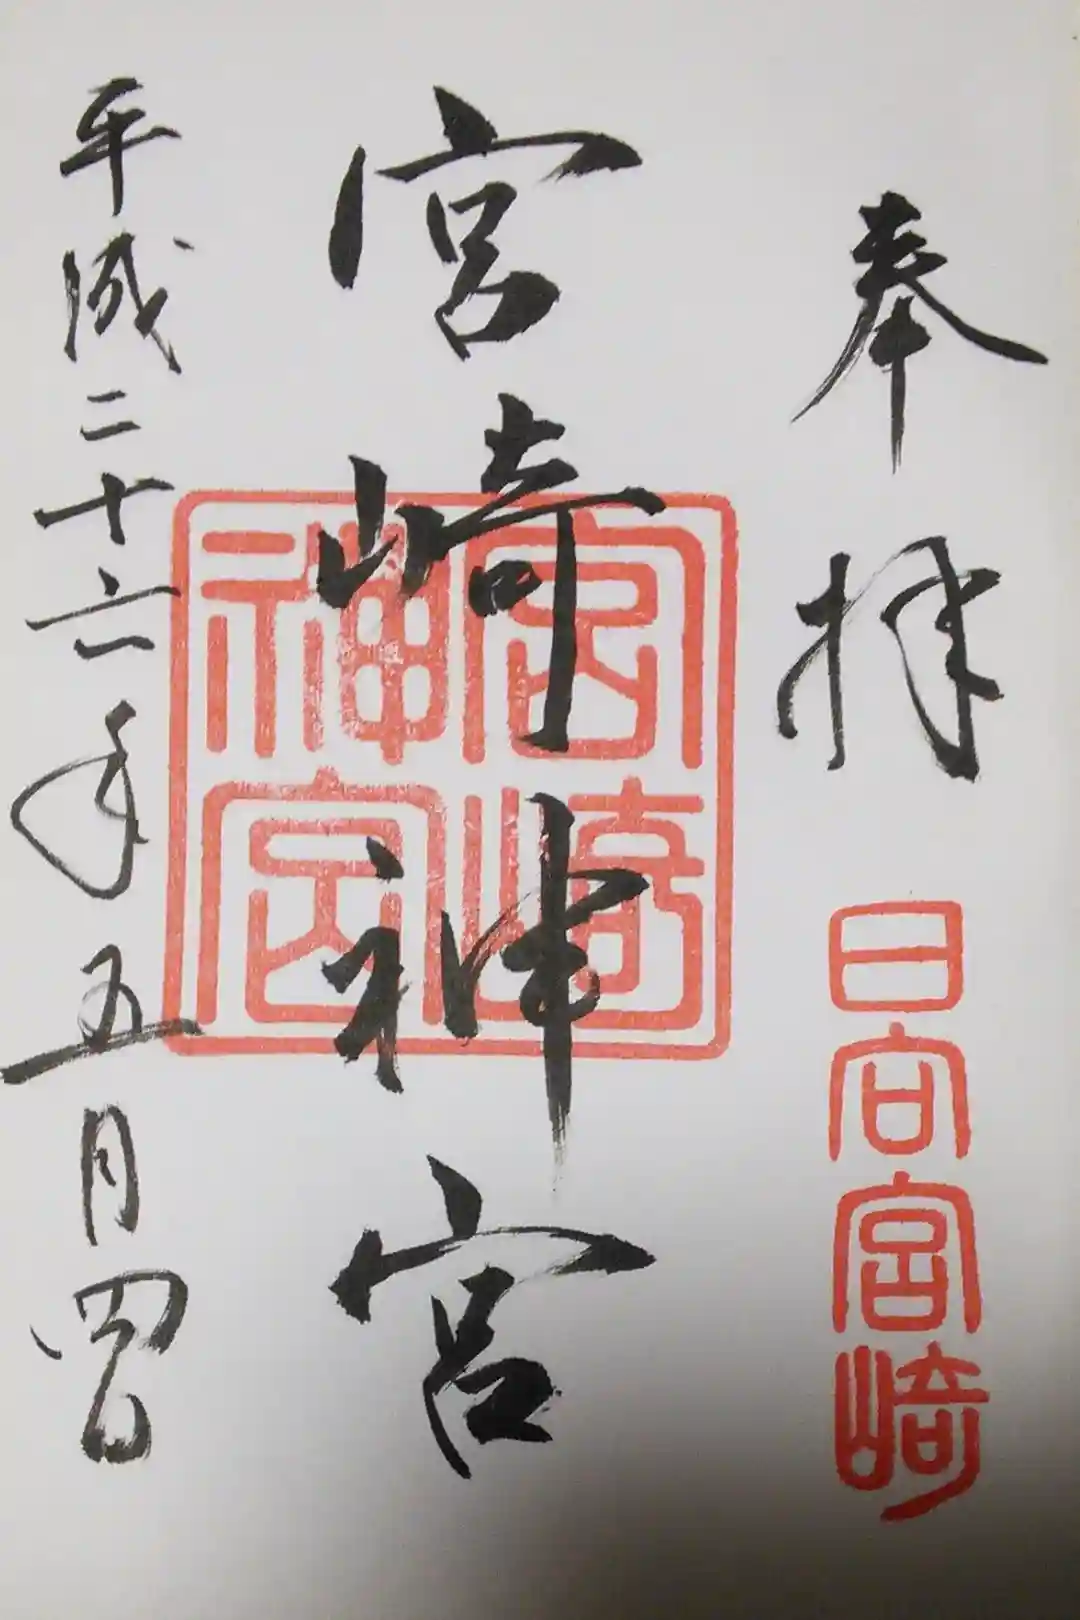 奉拝
日向宮崎
宮崎神宮
宮崎
神宮
平成二十六年五月四日